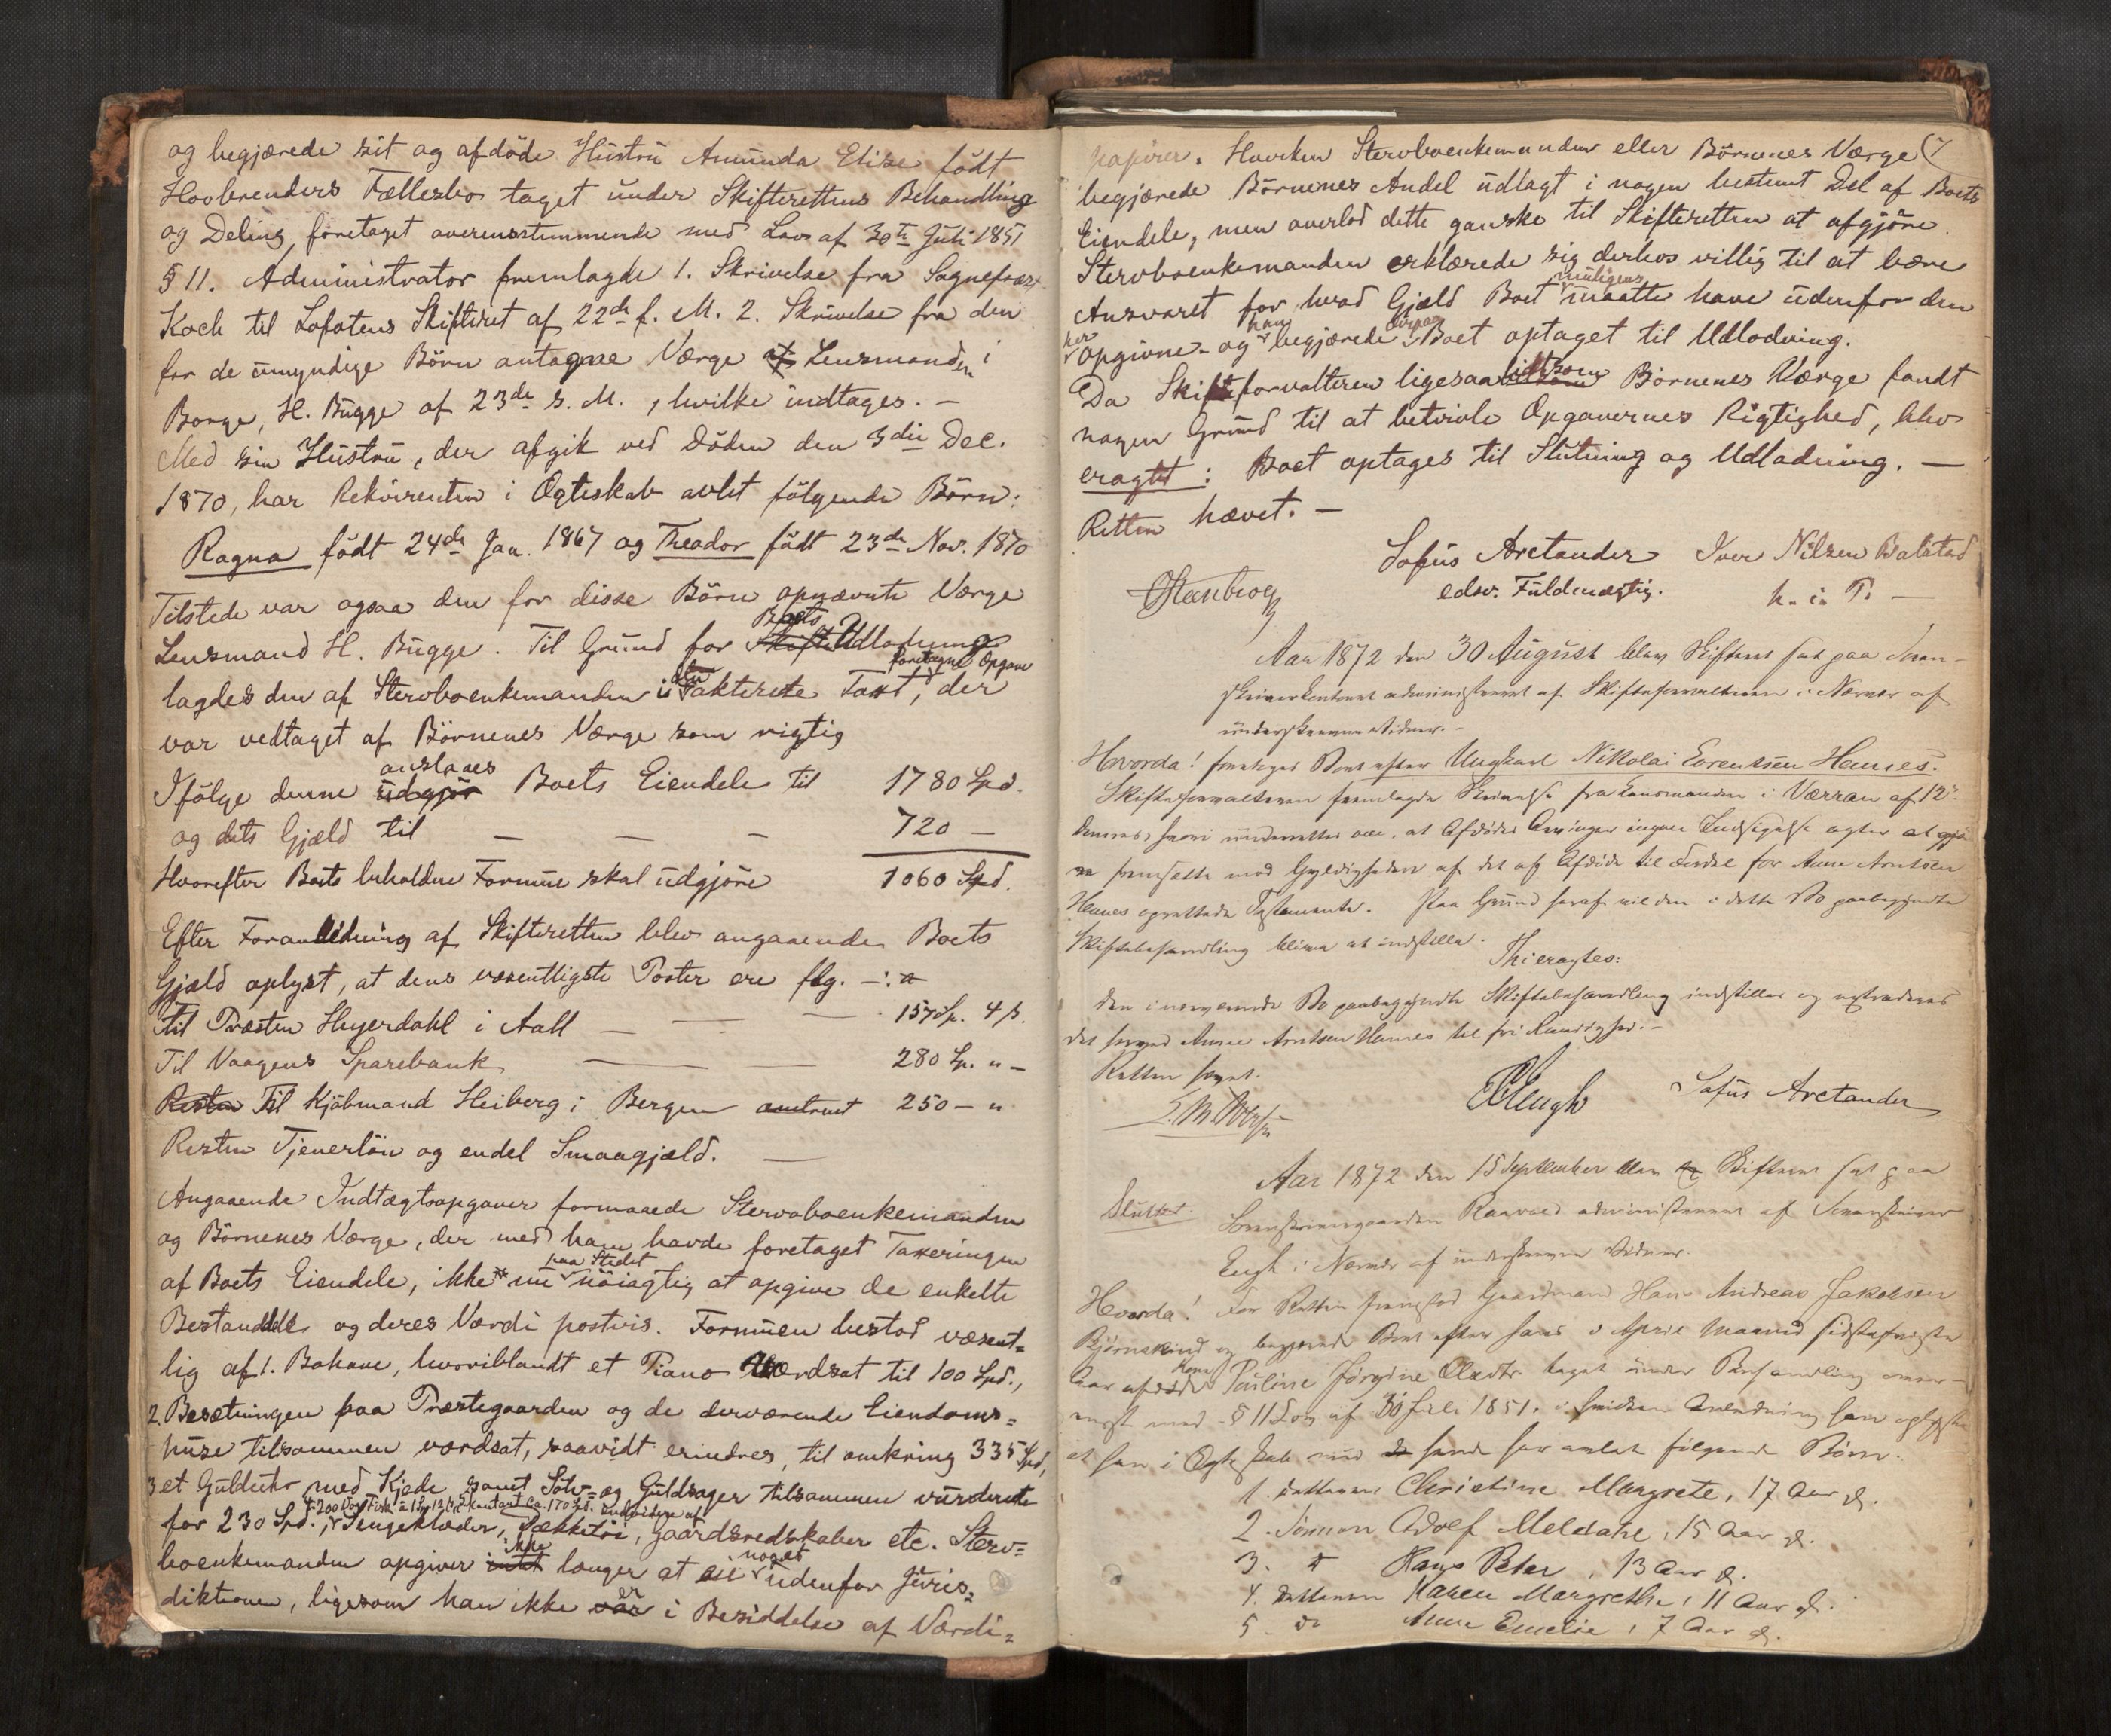 og begjærede sit og afdöde Hustru Amunda Elise födt
Hoobrenders Fællesbo taget under Skifterettens Behandling
og Deling, foretaget overensstemmende med Lov af 30te Juli 1851
§ 11. Administrator fremlagde 1. Skrivelse fra Sognepræst
Koch til Lofotens Skifteret af 22de f. M. 2. Skrivelse fra den
for de umyndige Börn antagne Værge Lensmanden i
Borge, H. Bugge af 23de s. M., hvilke indtages. –
Med sin Hustru, der afgik ved Döden den 3die Dec.
1870, har Rekvirenten i Ægteskab avlet fölgende Börn:
Ragna födt 24de Jan. 1867 og Theodor födt 23de Nov. 1870
Tilstede var ogsaa den for disse Börn opnævnte Værge
Lensmand H. Bugge. Til Grund for Skifte Boets Udlodning
lagdes den af Stervboenkemanden foretagne Taxt, Opgave der
var vedtaget af Börnenes Værge som rigtig
Ifölge denne udgjör anslaaes Boets Eiendele til 1780 Spd.
og dets Gjæld til – – – 720 –
Hvorefter Boets beholdne Formue skal udgjöre 1060 Spd.
Efter Foranledning af Skifteretten blev angaaende Boets
Gjæld oplyst, at dens væsentligste Poster ere flg. –:
Til Præsten Heyerdahl i Aall – – – 157 Sp. 4 ß.
Til Vaagens Sparebank – – 280 Sp. " –
Resten Til Kjöbmand Heiberg i Bergen omtrent 250 – "
Resten Tjenerlön og endel Smaagjæld. –
Angaaende Indtægtsopgaver formaaede Stervboenkemanden
og Börnenes Værge, der med ham havde foretaget Taxeringen
af Boets Eiendele, ikke nu paa Stedet nöiagtig at opgive de enkelte
Bestanddele og deres Værdi postvis. Formuen bestod væsent=
lig af 1. Bohave, hvoriblandt et Piano værdsat til 100 Spd.,
2. Besætningen paa Præstegaarden og de derværende Eiendoms=
huse tilsammen værdsat, saavidt erindres, til omkring 335 Spd,
3 et Gulduhr med Kjede samt Sölv= og Guldsager tilsammen vurderede
for 230 Spd., 4. 200 Vog Fisk à 1 Sp 12 ß, 5 kontant ca. 170 Sp. endvidere af
Sengeklæder, Dækketöi, Gaardsredskaber etc. Sterv=
boenkemanden opgiver intet ikke længer at eie noget udenfor Juris=
diktionen, ligesom han ikke var er i Besiddelse af Værdi=
papirer. Hverken Stervboenkemanden eller Börnenes Værge (7
begjærede Börnenes Andel udlagt i nogen bestemt Del af Boets
Eiendele, men overlod dette ganske til Skifteretten at afgjöre.
Stervboenkemanden erklærede sig derhos villig til at bære
Ansvaret for, hvad Gjæld Boet muligens maatte have udenfor den
her opgivne – og han begjærede derpaa Boet optaget til Udlodning.
Da Skifteforvalteren ligesaalidt som Börnenes Værge fandt
nogen Grund til at betvivle Opgavernes Rigtighed, blev
eragtet: Boet optages til Slutning og Udlodning. –
Retten hævet. –
Sofus Arctander Iver Nilsen Balstad
edsv. Fuldmægtig. h. i. P. –
Aar 1872 den 30 August blev Skifteret sat paa Soren-
skriverkontoret administreret af Skifteforvalteren i Nærvær af
underskrevne Vidner. –
Hvorda! foretoges Boet efter Ungkarl Nikolai Lorentsen Hennes.
Skifteforvalteren fremlagde Skrivelse fra Lensmanden i Værran af 12
dennes, hvori underrettes om, at Afdödes Arvinger ingen Indsigelse agter at gjö
re fremsatte mod Gyldigheden af det af Afdöde til Fordel for Anne Arntsen
Hennes oprettede Testamente. Paa Grund heraf vil den i dette Bo paabegyndte
Skiftebehandling blive at indstille.
Thi eragtes:
Den i nærværende Bo paabegyndte Skiftebehandling indstilles og extraderes
det hermed Anne Arntsen Hennes til fri Raadighed. –
Retten hævet.
Engh Sofus Arctander
Aar 1872 den 15 September blev Skifteret sat paa
Sluttet.
Sorenskrivergaarden administreret af Sorenskriver
Engh i Nærvær af underskrevne Vidner.
Hvorda! For Retten fremstod Gaardmand Hans Andreas Jakobsen
Björnsand og begjærede Boet efter hans i April Maaned sidstafvigte
Aar afdöde Kone Pauline Jörgine Olsdtr. taget under Behandling overens-
ensst med § 11 Lov af 30 Juli 1851. i hvilken Anledning han oplyste
at han i Ægteskab med hende har avlet fölgende Börn.
1. Datteren Christine Margrete, 17 Aar gl.
2. Sönnen Adolf Meldahl, 15 Aar gl.
3. do Hans Peter, 13 Aar gl.
4. Datteren Karen Margrethe, 11 Aar gl.
5. do Anne Emelie, 7 Aar gl.